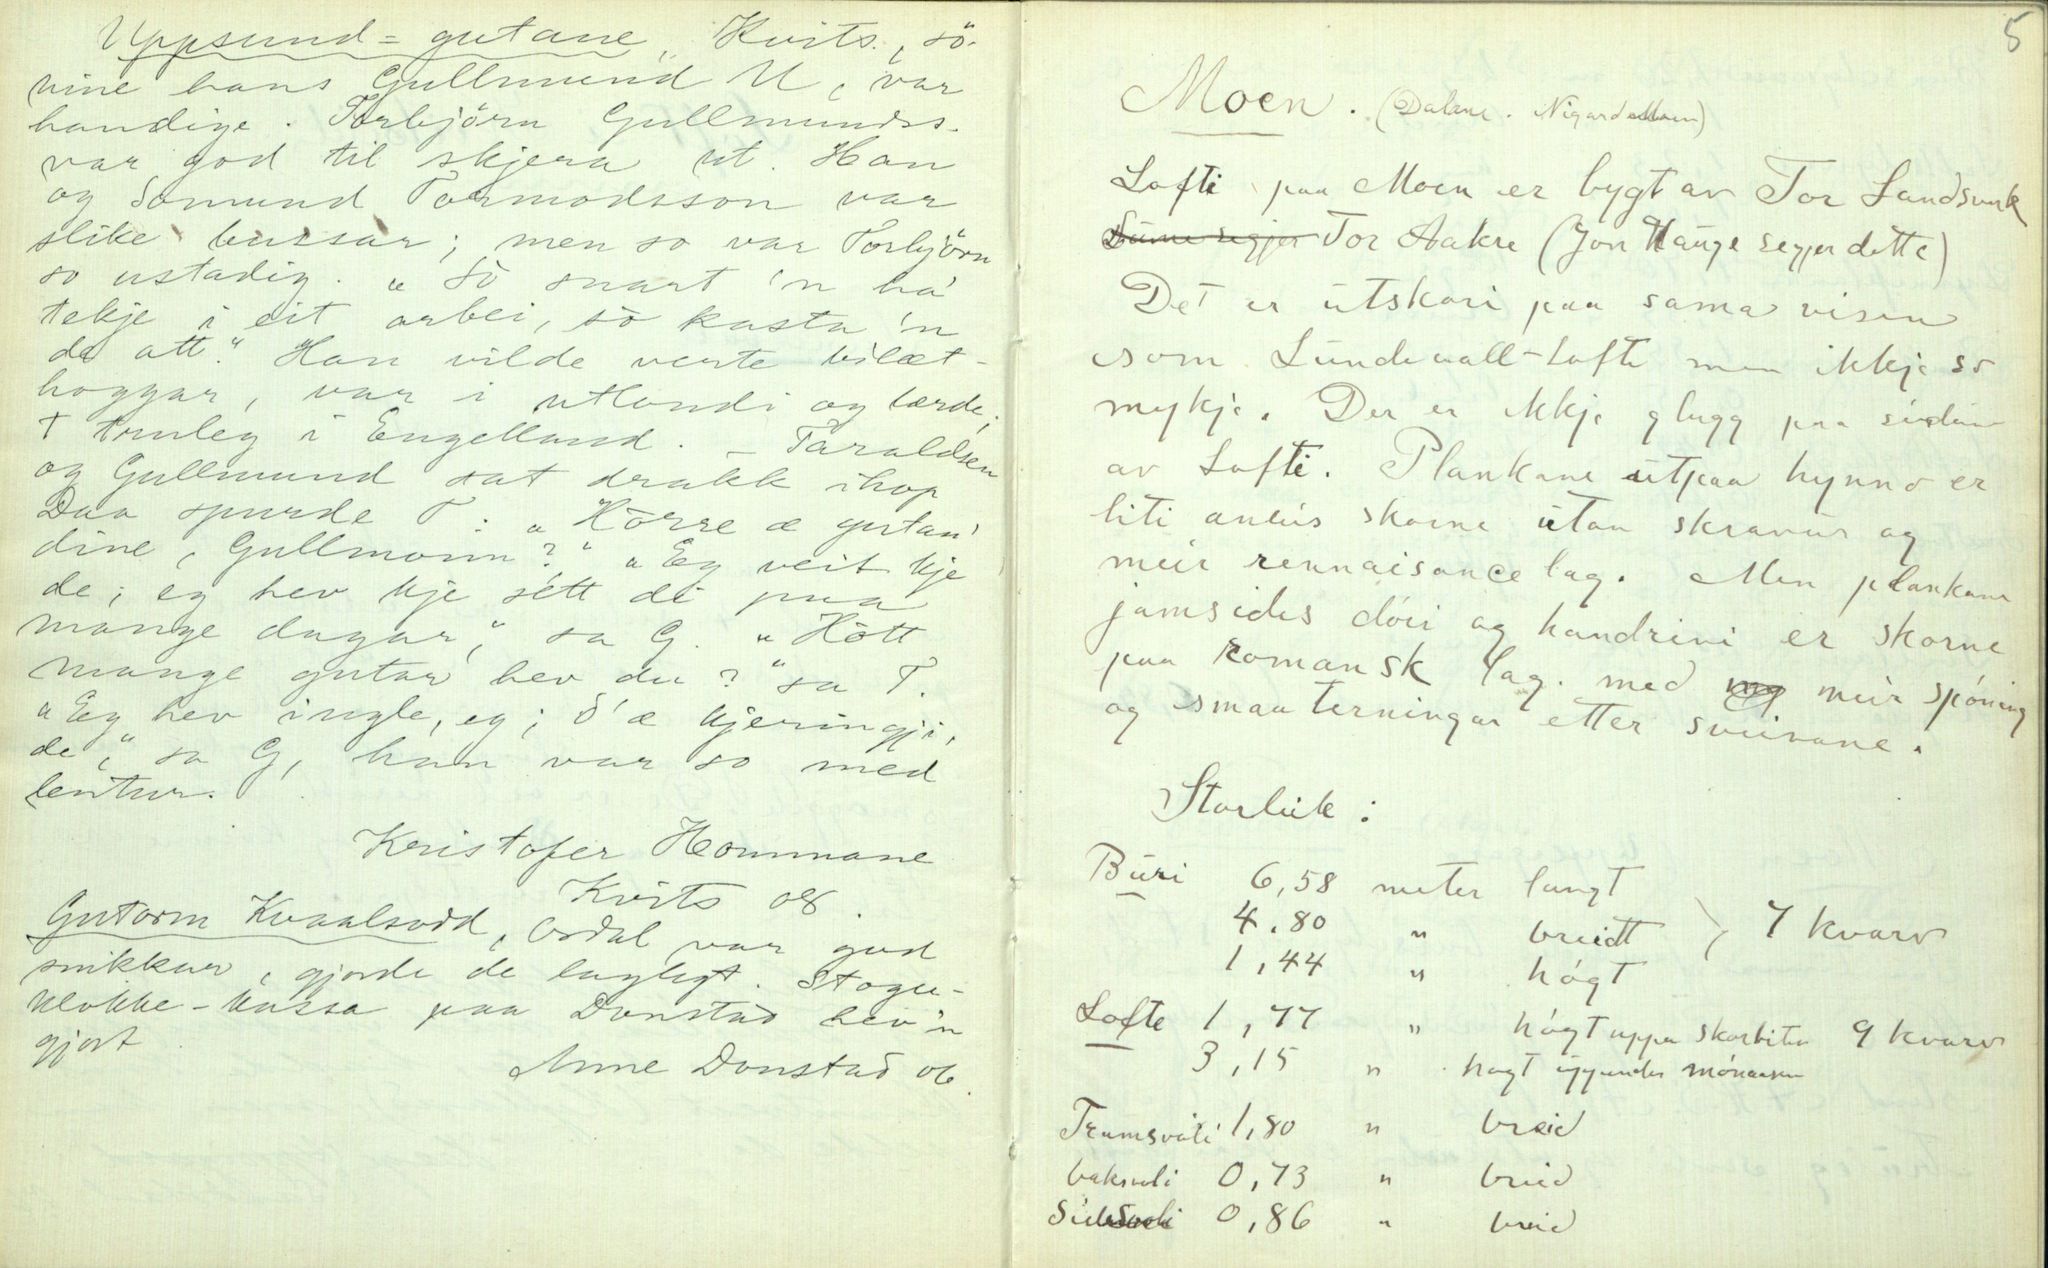 Uppsund-gutane, Kvits., sö-
nine hans Gullmund U, var
handige. Torbjörn Gullmundss.
var god til skjera ut. Han
og Somund Tormodsson var
slike bussar; men so var Torbjörn
so ustadig. „So snart 'n ha'
tekje i eit arbei, so kasta 'n
da att." Han vilde verte bilæt-
hoggar, var i utlondi og lærde,
+ truleg i Engelland. — Taraldsen
og Gullmund sat drakk ihop
Daa spurde T: „Hörre æ gutan'
dine, Gullmonn?" „Eg veit kje
de; eg hev kje sétt dei paa
mange dagar," sa G. „Hött
mange gutar hev du?" sa T.
„Eg hev ingle, eg; d'æ kjeringji,
de," sa G, han var so med
lentur.
Kristofer Hommane
Kvits 08.
Gutorm Kvaalsodd, Osdal var god
snikkar, gjorde de laglegt. Stogu-
klokke-kassa paa Donstad hev'n
gjort
Anne Donstad 06.
5
Moen. (Dalane. Nigard Moen)
Lofti paa Moen er bygt av Tor Landsverk
Sume segjer Tor Aakre (Jon Hauge segjer dette)
Det er utskori paa sama visen
som Lundevall-Lofte men ikkje so
mykje. Der er ikkje glugg paa sidune
av Lofti. Plankane utpaa hynno er
liti aneiis skorne utan skravur og
meir rennaisance lag. Men plankane
jamsides dóri og handrini er skorne
paa romansk lag. med meir spóning
og smaa terningar etter sveivane.
Storleik:
Buri 6,58 meter langt
4,80 " breidt } 7 kvarv
1,44 " högt
Lofte 1,77 " högt uppa skorbiten 9 kvarv
3,15 " hogt uppunder mónaasen
Framsvali 1,80 " breid
baksvali 0,73 " breid
Sidesvali 0,86 " breid